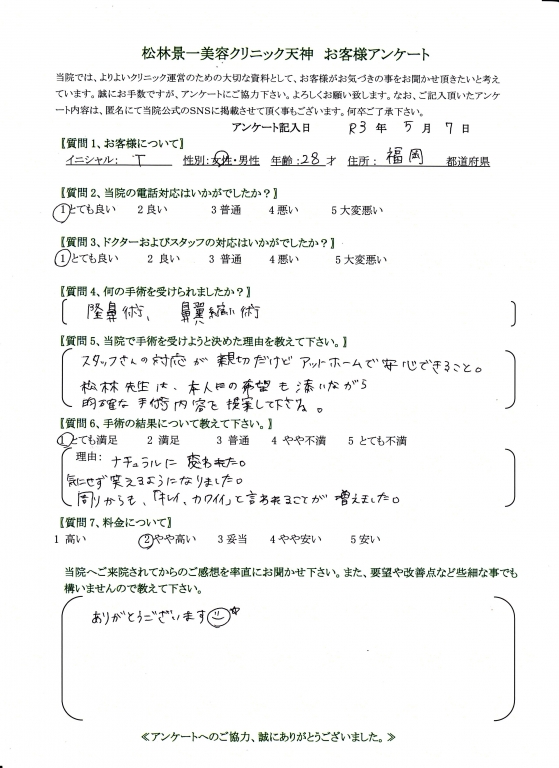 松林景一美容クリニック天神　お客様アンケート
当院では、よりよいクリニック運営のための大切な資料として、お客様がお気づきの事をお聞かせ頂きたいと考え
ています。誠にお手数ですが、アンケートにご協力下さい。よろしくお願い致します。なお、ご記入頂いたアンケ
ート内容は、匿名にて当院公式のSNSに掲載させて頂く事もございます。何卒ご了承下さい。
アンケート記入日　R3年 5月 7日
【質問1、お客様について】
イニシャル：　T　性別：女性・男性　年齢：28才　住所：　福岡　都道府県
【質問2、当院の電話対応はいかがでしたか？】
1とても良い　2良い　3普通　4悪い　5大変悪い
【質問3、ドクターおよびスタッフの対応はいかがでしたか？】
1とても良い　2 良い　3 普通　4悪い　5大変悪い
【質問4、何の手術を受けられましたか？】
隆鼻術、　鼻翼縮小術
【質問5、当院で手術を受けようと決めた理由を教えて下さい。】
スタッフさんの対応が親切だけどアットホームで安心できること。
松林先生は、本人の希望も添いながら
的確な手術内容を提案して下さる。
【質問6、手術の結果について教えて下さい。】
1とても満足　2 満足　3 普通　4 やや不満　5 とても不満
理由：ナチュラルに変われた。
気にせず笑えるようになりました。
周りからも、「キレイ、カワイイ」と言われることが増えました。
【質問7、料金について】
1 高い　2やや高い　3 妥当　4 やや安い　5 安い
当院へご来院されてからのご感想を率直にお聞かせ下さい。また、要望や改善点など些細な事でも
構いませんので教えて下さい。
ありがとうございます
≪アンケートへのご協力、誠にありがとうございました。≫